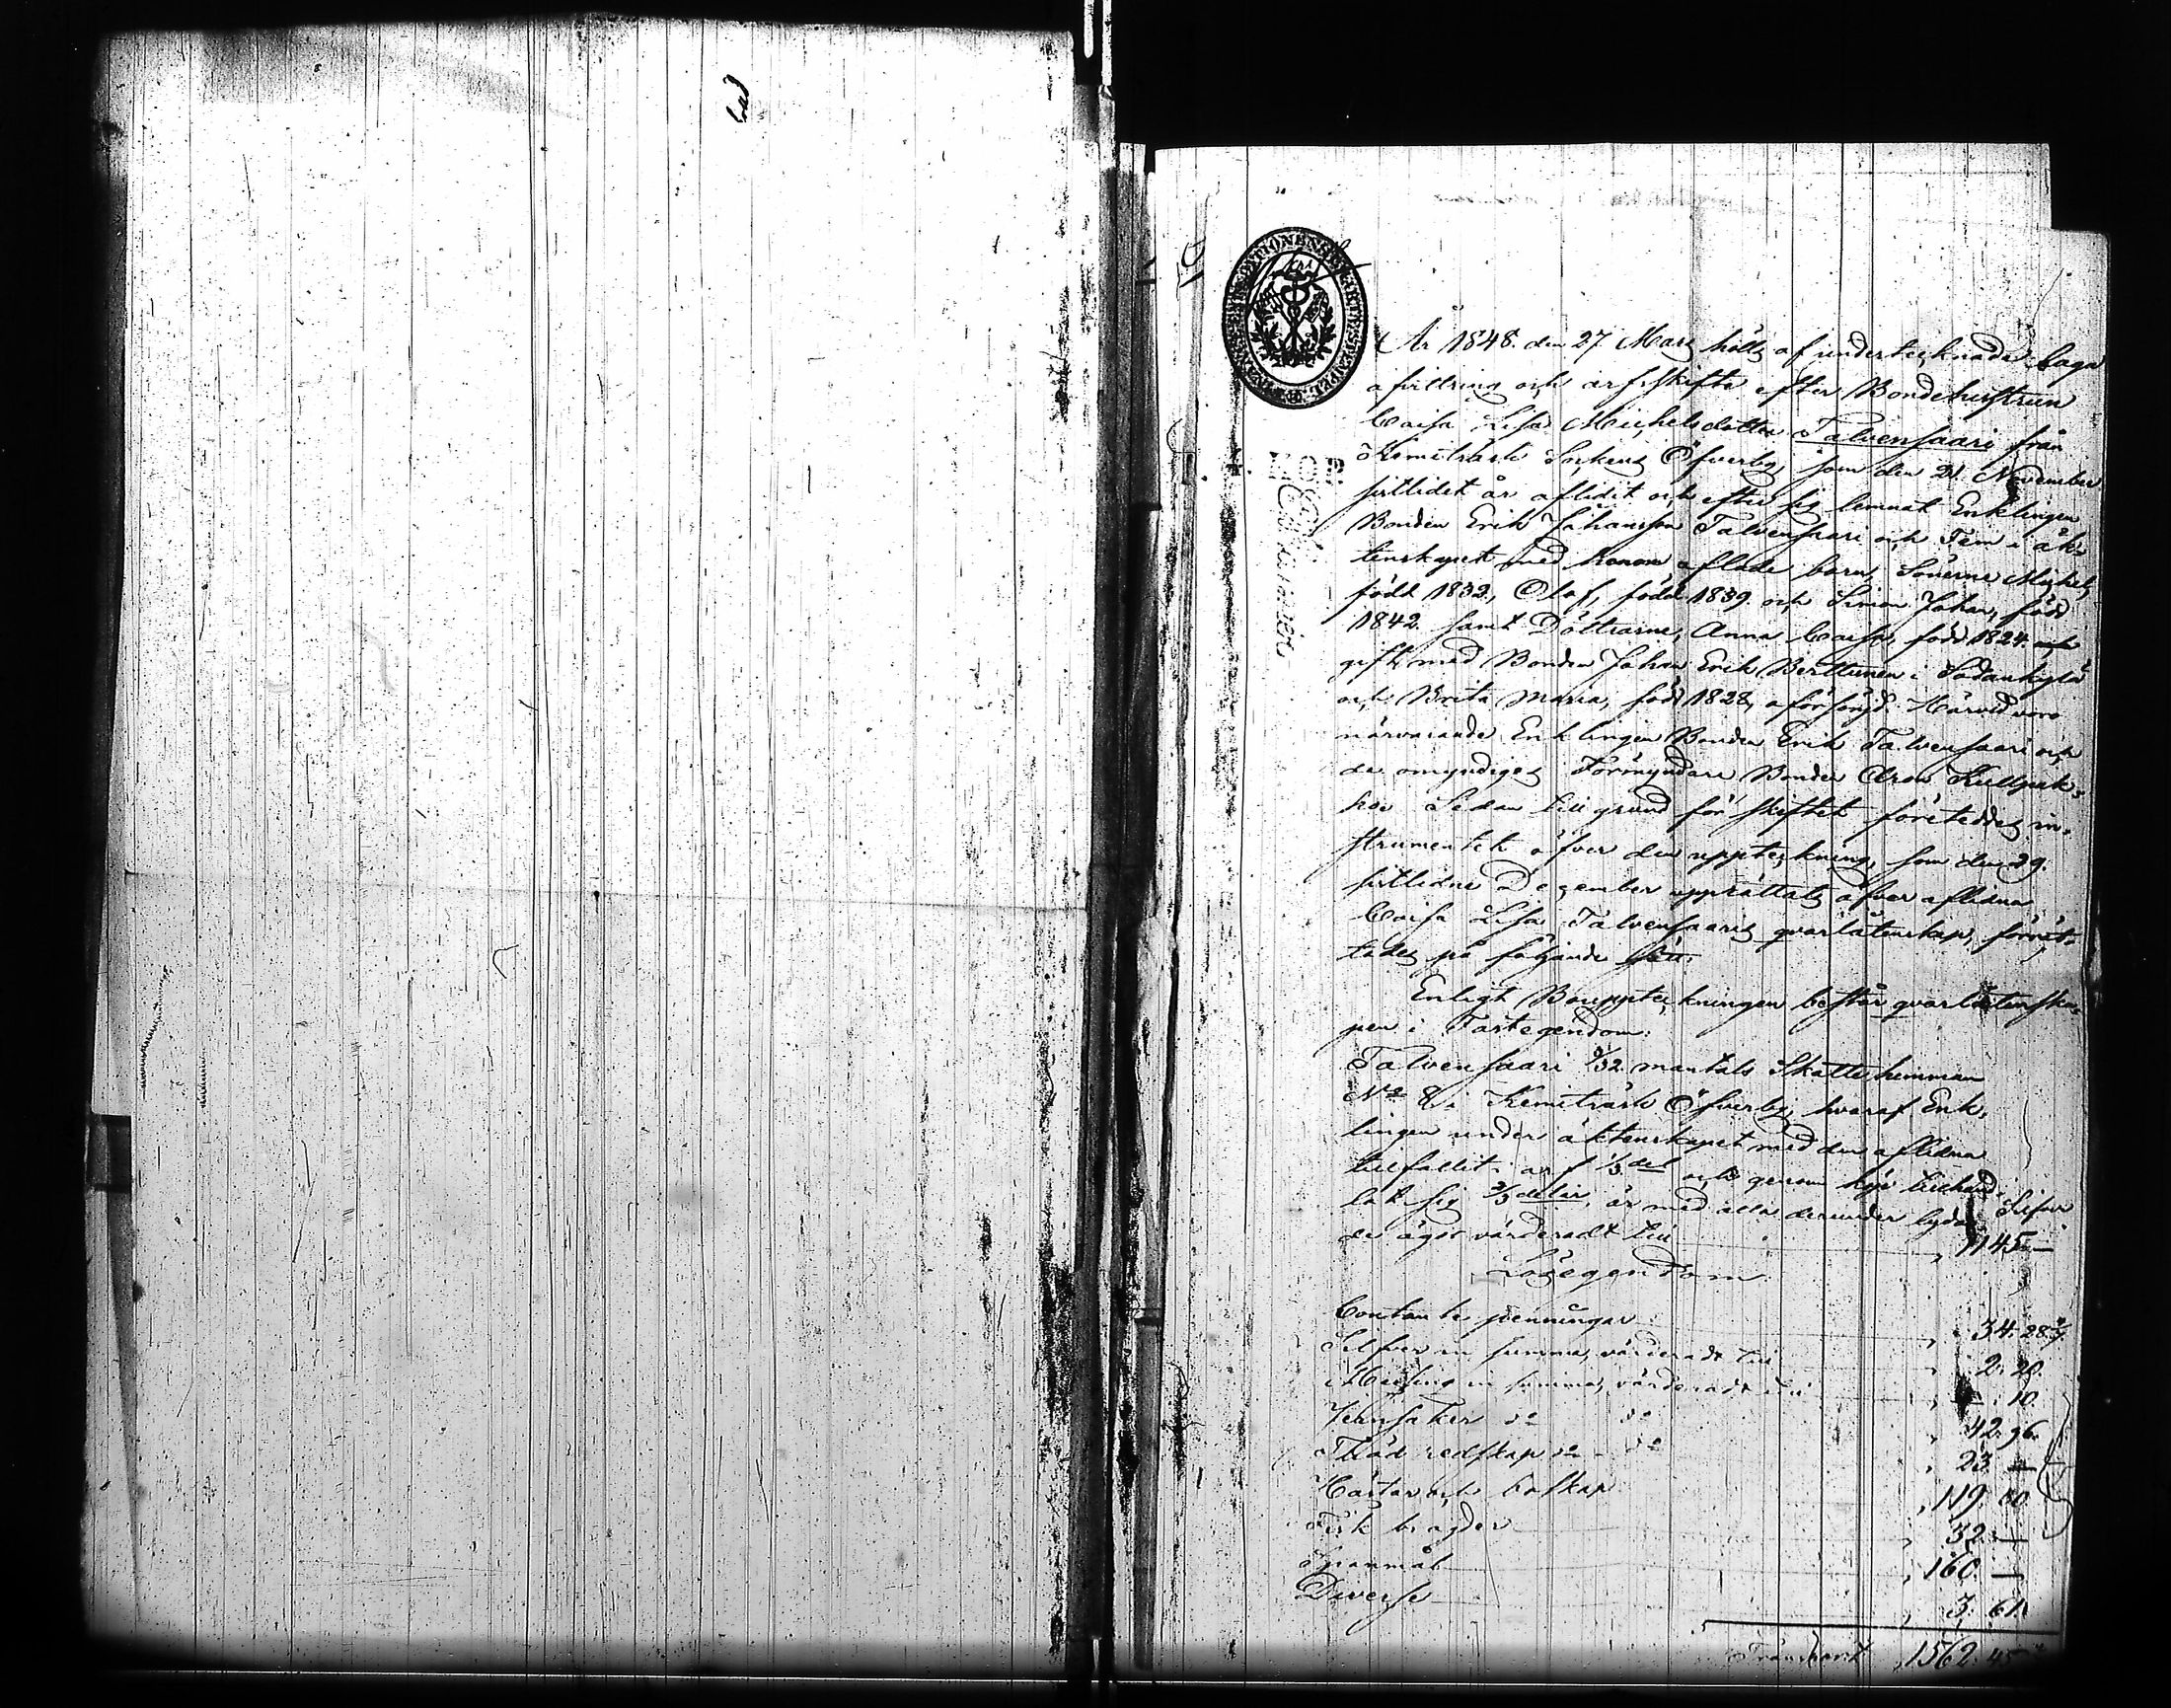 År 1848. den 27 Mars hölls af undertecknade laga
afvittring och arfskifte efter Bondehustrun
Caisa Lisa Michelsdotter Talvensaari från
Kemiträsk Sockens Öfverby, som den 21. November
sistlidet år aflidit och efter sig lemnat Enklingen
Bonden Erik Johansson Talvensaari och Fem i äk-
tenskapet med honom aflade barn, Sönerne Michel,
född 1832, Olof, född 1839 och Simon Johan, född
1842 samt Döttrarne, Anna Caisa, född 1824
gift med Bonden Johan Erik Berttunen i Sodankylä
och Brita Maria, född 1828, oförsörjd. Härvid voro
närvarande Enklingen Bonden Erik Talvensaari och
de omyndiges Förmyndare Bonden Aron Kullpak-
ko. Sedan till grund för skiftet företeddes in-
strumentet öfver den uppteckning, som den 29.
sistlidne December upprättats öfver aflidna
Caisa Lisa Talvensaaris qvarlåtenskap, förrät-
tades på följande sätt:
Enligt Bouppteckningen består qvarlåtenska-
pen i Fastegendom:
Talvensaari 9/32 mantals Skattehemman
No 8 i Kemiträsk Öfverby, hvaraf Enk-
lingen under äktenskapet med den aflidna
tillfallit i arf 1/3 del och genom köp tillhand-
lat sig 2/3 delar, är med alla derunder lydan- Silfver
de ägor värderadt till 1145 —
Lösegendom
Contante penningar 34. 28 4/7
Silfver in summa, värderadt till 2. 20.
Messing in summa, värderadt till — 10
Jernsaker do do 42. 96.
Träd redskap do do 23. —
Hästar och boskap 119. 60
Fisk bragder 32. —
Spanmål 160. —
Diverse 3. 61.
Transport 1562. 45